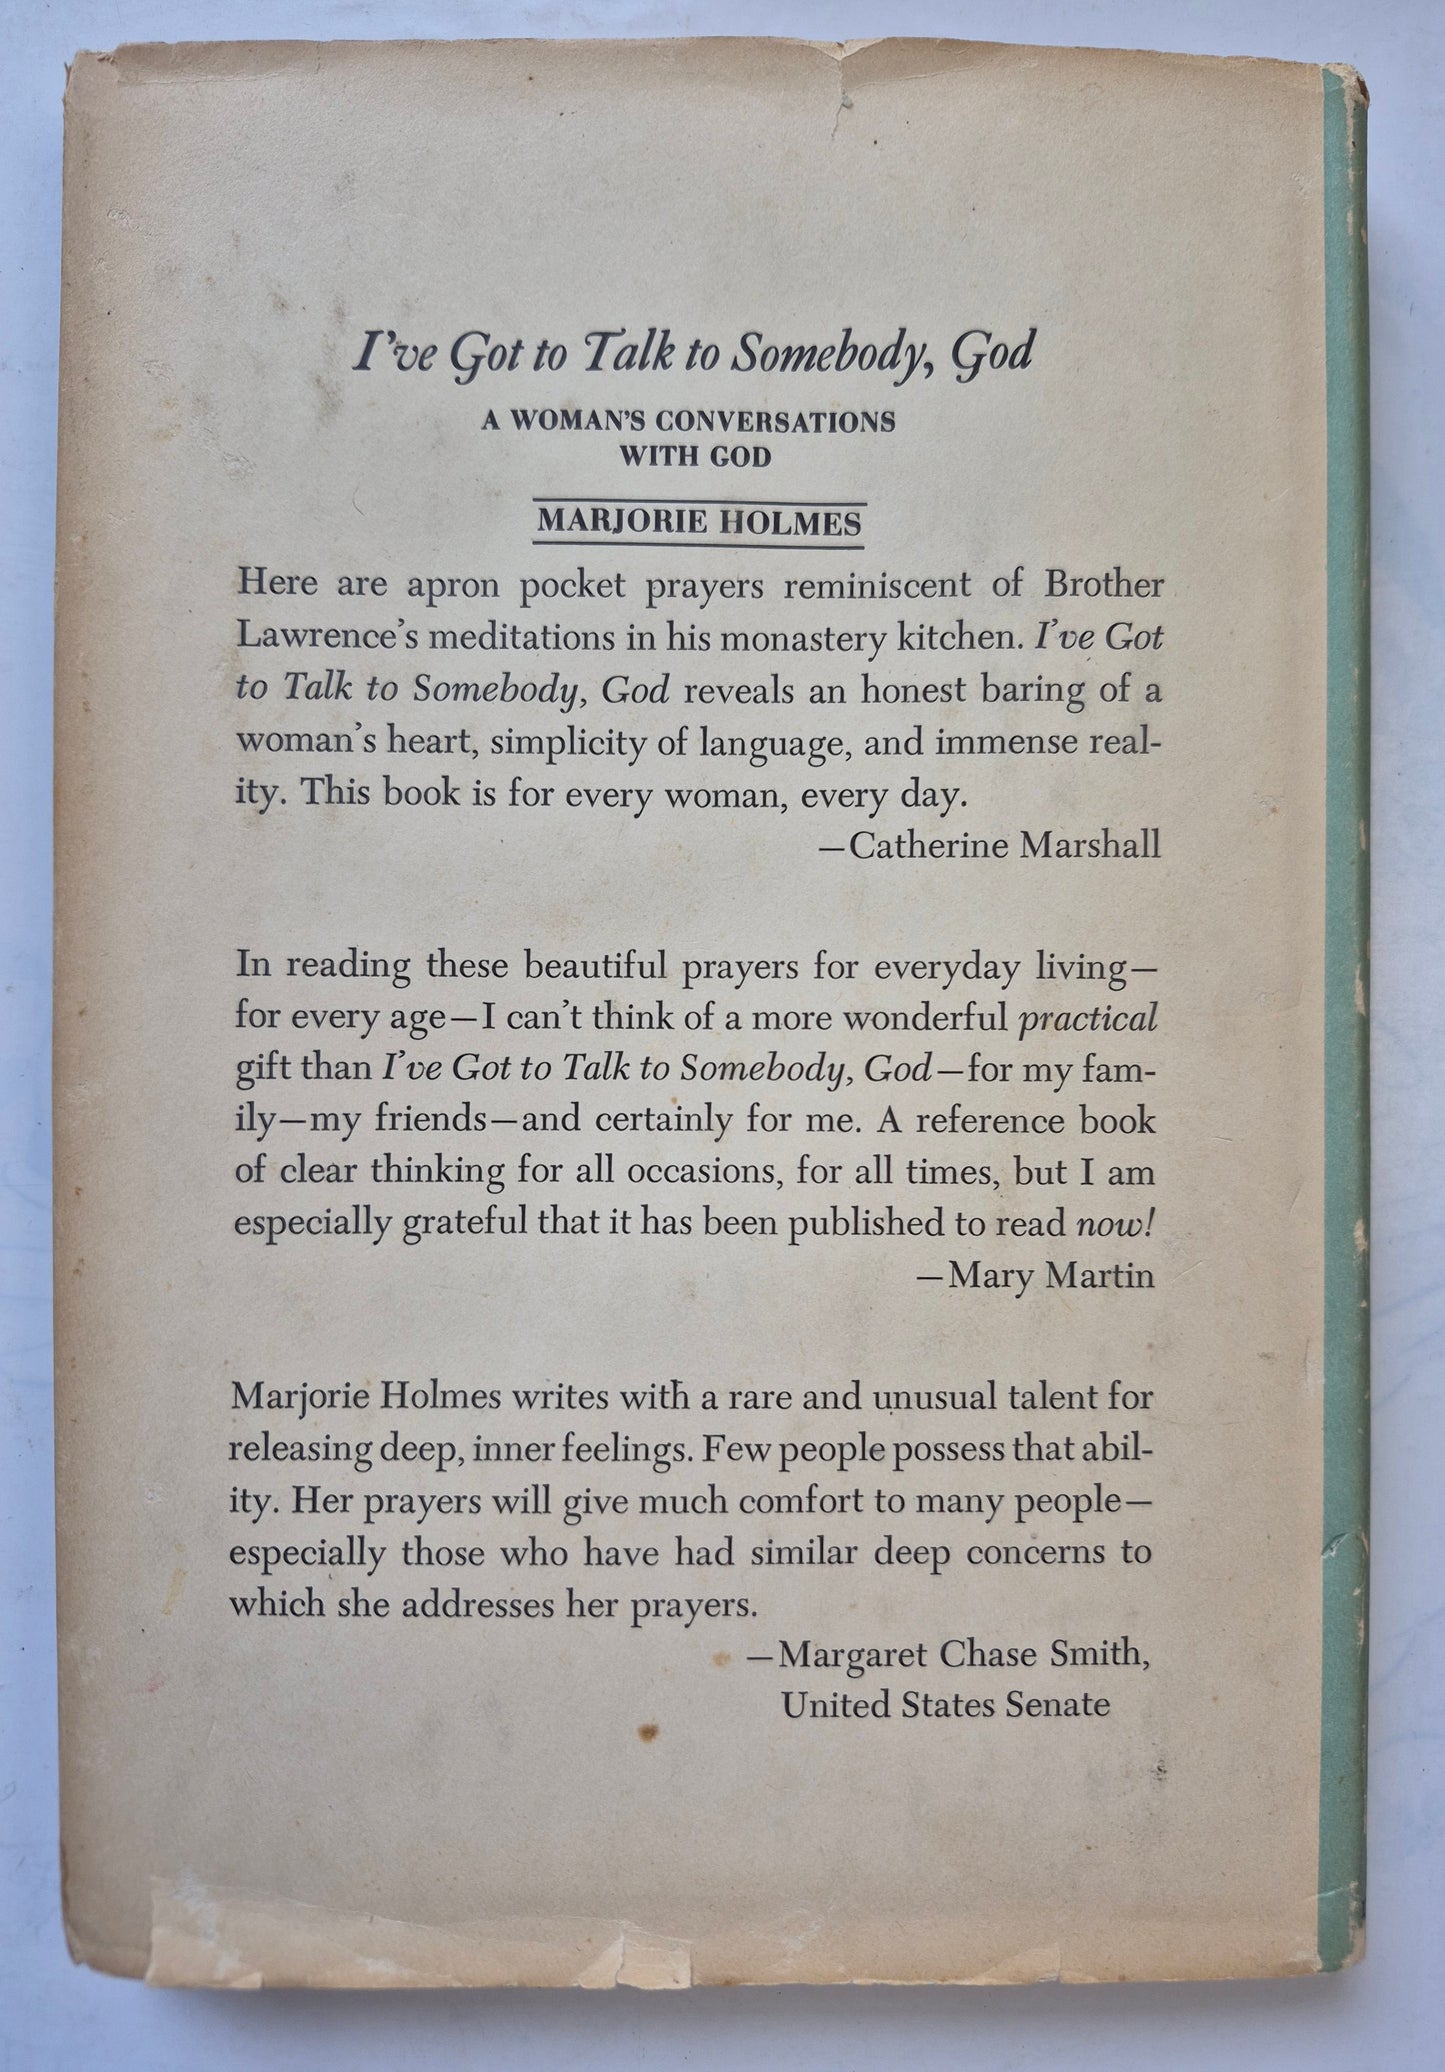 I've Got to Talk to Somebody, God
A WOMAN'S CONVERSATIONS
WITH GOD
MARJORIE HOLMES
Here are apron pocket prayers reminiscent of Brother
Lawrence's meditations in his monastery kitchen. I've Got
to Talk to Somebody, God reveals an honest baring of a
woman's heart, simplicity of language, and immense real-
ity. This book is for every woman, every day.
—Catherine Marshall
In reading these beautiful prayers for everyday living—
for every age—I can't think of a more wonderful practical
gift than I've Got to Talk to Somebody, God—for my fam-
ily—my friends—and certainly for me. A reference book
of clear thinking for all occasions, for all times, but I am
especially grateful that it has been published to read now!
—Mary Martin
Marjorie Holmes writes with a rare and unusual talent for
releasing deep, inner feelings. Few people possess that abil-
ity. Her prayers will give much comfort to many people—
especially those who have had similar deep concerns to
which she addresses her prayers.
—Margaret Chase Smith,
United States Senate